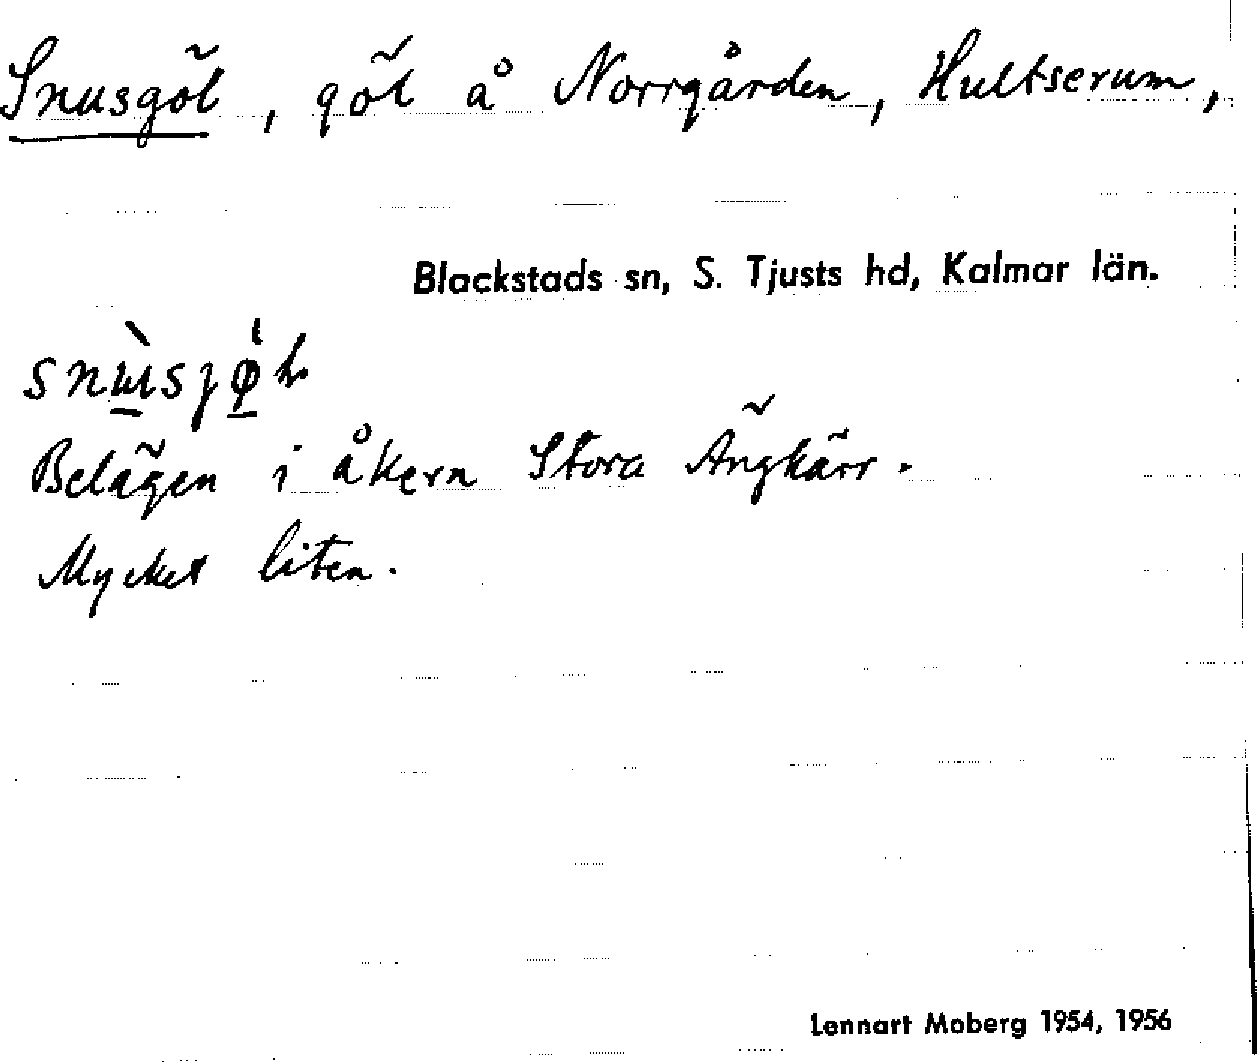 Snusgöl, göl å Norrgården, Hultserum,
Blackstads sn, S. Tjusts hd, Kalmar län.
Belägen i åkern Stora Ängkärr.
Mycket liten.
Lennart Moberg 1954, 1956